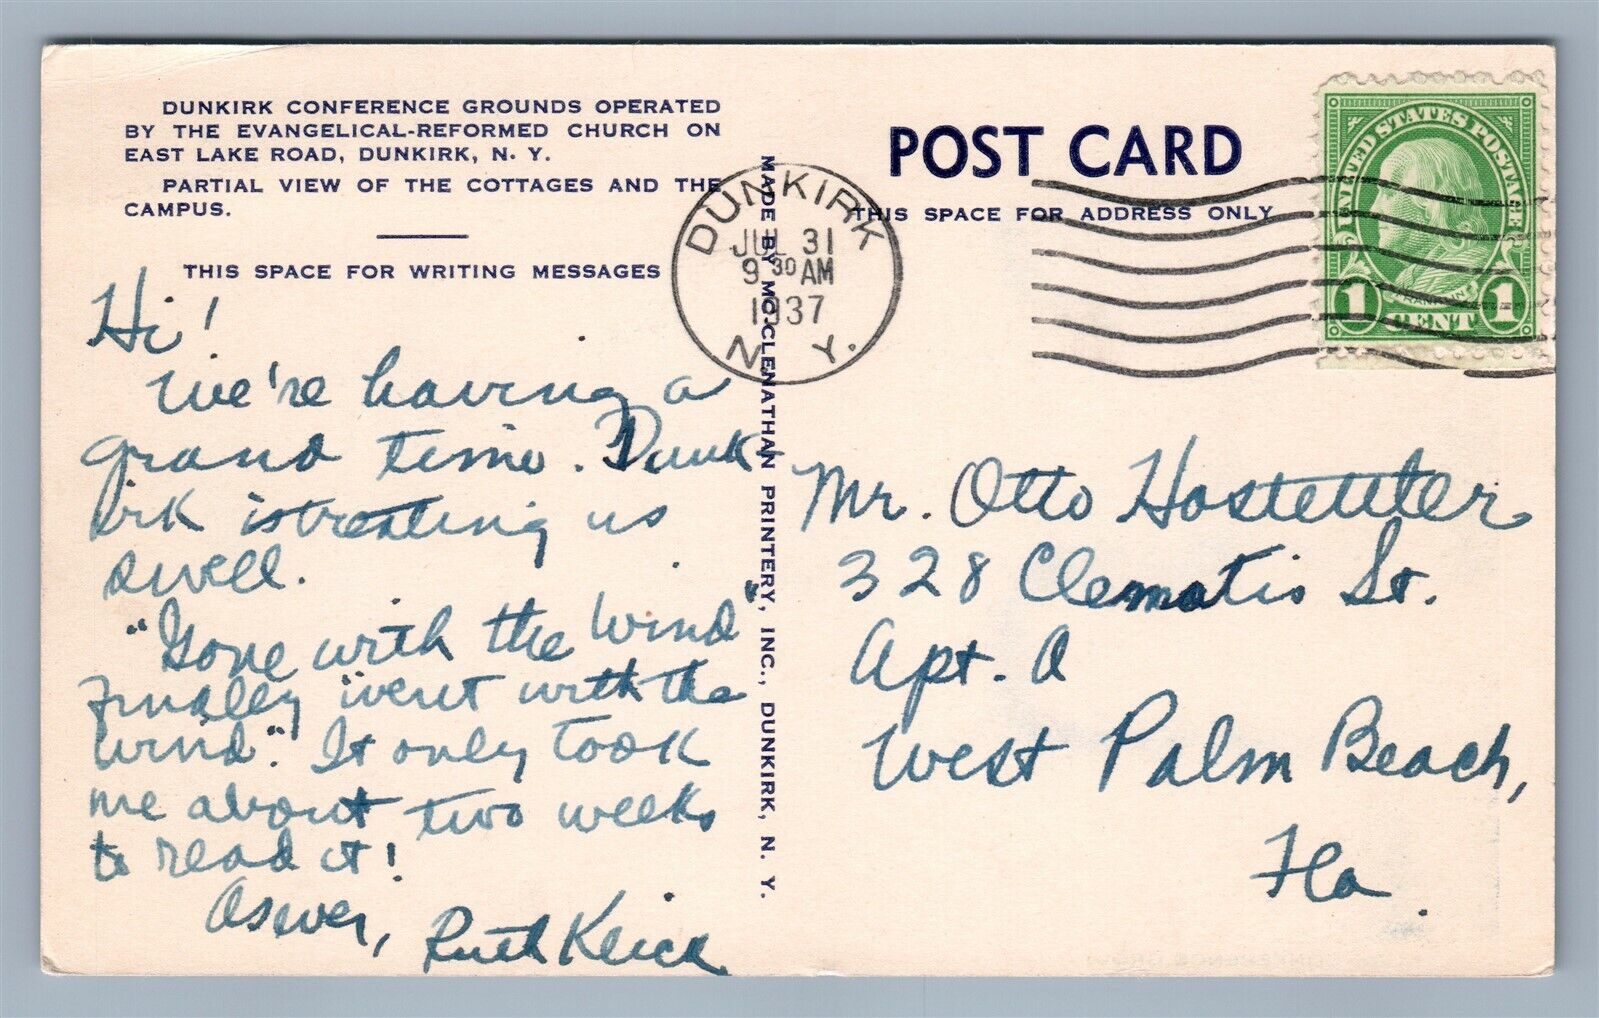 DUNKIRK CONFERENCE GROUNDS OPERATED
BY THE EVANGELICAL-REFORMED CHURCH ON
EAST LAKE ROAD, DUNKIRK, N. Y.
PARTIAL VIEW OF THE COTTAGES AND THE
CAMPUS.
THIS SPACE FOR WRITING MESSAGES
Hi!
We're having a
grand time. Dunk
irk is treating us
swell.
"Gone with the Wind"
Finally "went with the
Wind". It only took
me about two weeks
to read it!
As ever,
Ruth
MADE BY McCLENATHAN PRINTERY, INC., DUNKIRK, N. Y.
DUNKIRK
JUL 31
9 30 AM
1937
N. Y.
POST CARD
THIS SPACE FOR ADDRESS ONLY
UNITED STATES POSTAGE
FRANKLIN
1 CENT 1
Mr. Otto Hostettler
328 Clematis St.
Apt. O
West Palm Beach,
Fla.